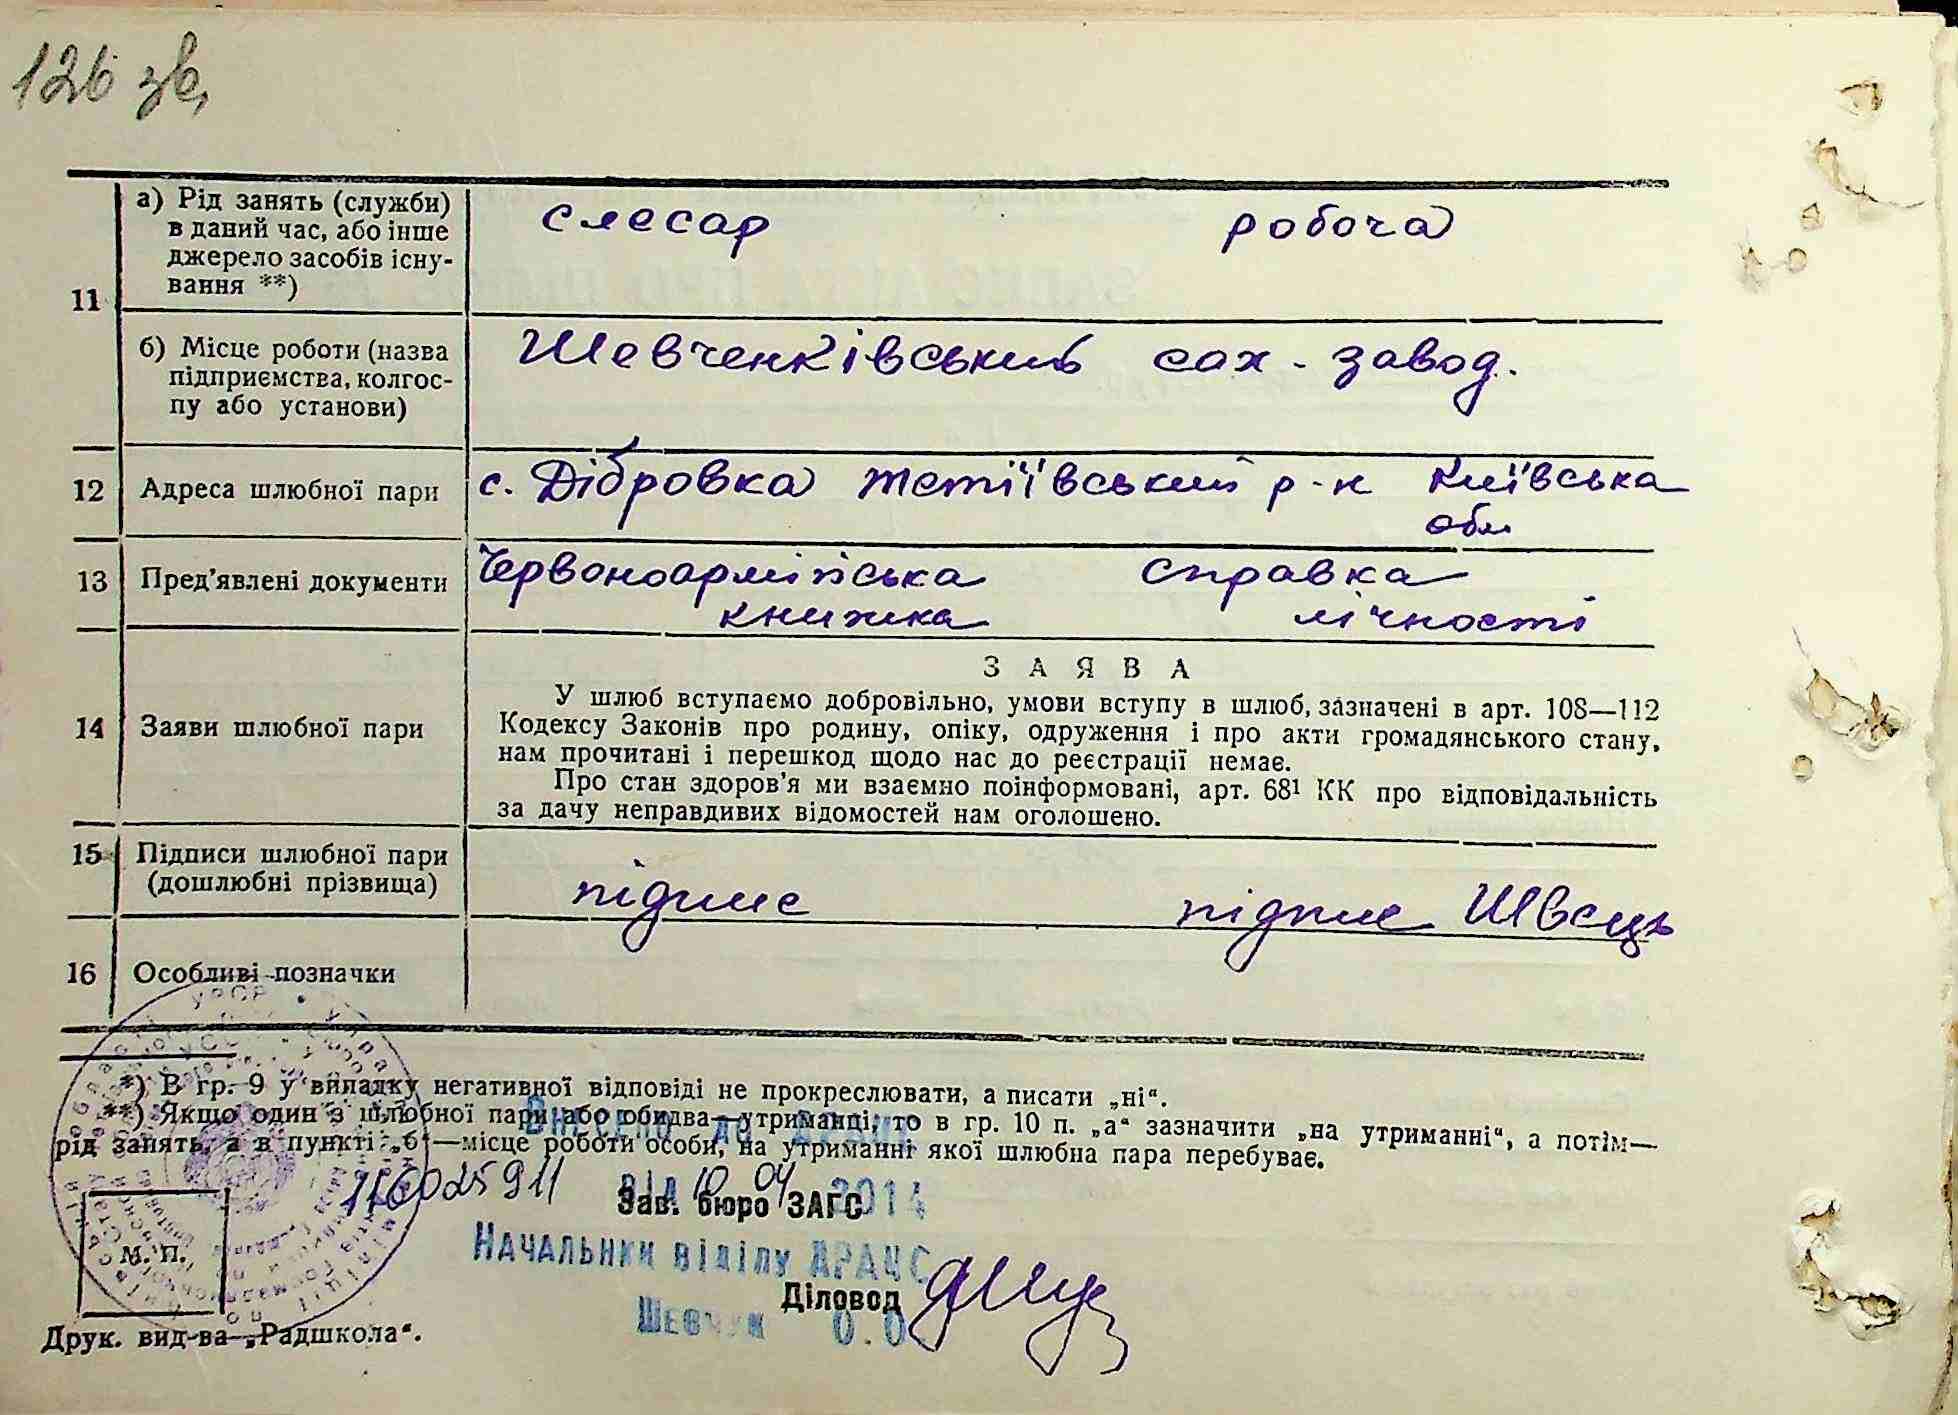 126 зв.
11
а) Рід занять (служби)
в даний час, або інше
джерело засобів існу-
вання **)
слесар робоча
б) Місце роботи (назва
підприємства, колгос-
пу або установи)
Шевченківський сах - завод.
12 Адреса шлюбної пари с. Дібровка Тетіївський р-н Київська
обл
13 Пред'явлені документи Червоноармійська справка
книжка лічності
14 Заяви шлюбної пари
ЗАЯВА
У шлюб вступаємо добровільно, умови вступу в шлюб, зазначені в арт. 108—112
Кодексу Законів про родину, опіку, одруження і про акти громадянського стану,
нам прочитані і перешкод щодо нас до реєстрації немає.
Про стан здоров'я ми взаємно поінформовані, арт. 68¹ КК про відповідальність
за дачу неправдивих відомостей нам оголошено.
15 Підписи шлюбної пари
(дошлюбні прізвища)
підпис підпис Швець
16 Особливі позначки
*) В гр. 9 у випадку негативної відповіді не прокреслювати, а писати „ні“.
**) Якщо один з шлюбної пари або обидва—утриманці, то в гр. 10 п. „а“ зазначити „на утриманні“, а потім—
рід занять, а в пункті „б“—місце роботи особи, на утриманні якої шлюбна пара перебуває.
Внесено до ДРАЦС
116025911 від 10 04 2014
Зав. бюро ЗАГС
Начальник відділу ДРАЦС
М. П.
Діловод
Шевчук О.О
Друк. вид-ва „Радшкола“.